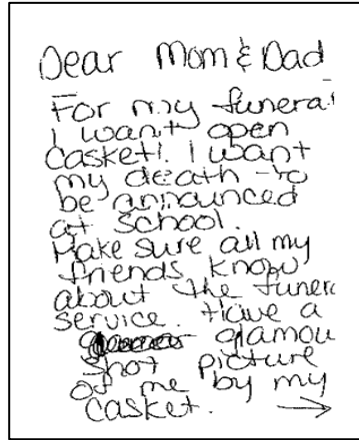 Dear Mom & Dad
For my funeral
I want open
casket!. I want
my death to
be announced
at school.
Make sure all my
friends know
about the funer
service. Have a
glamou
shot picture
of me by my
casket. →